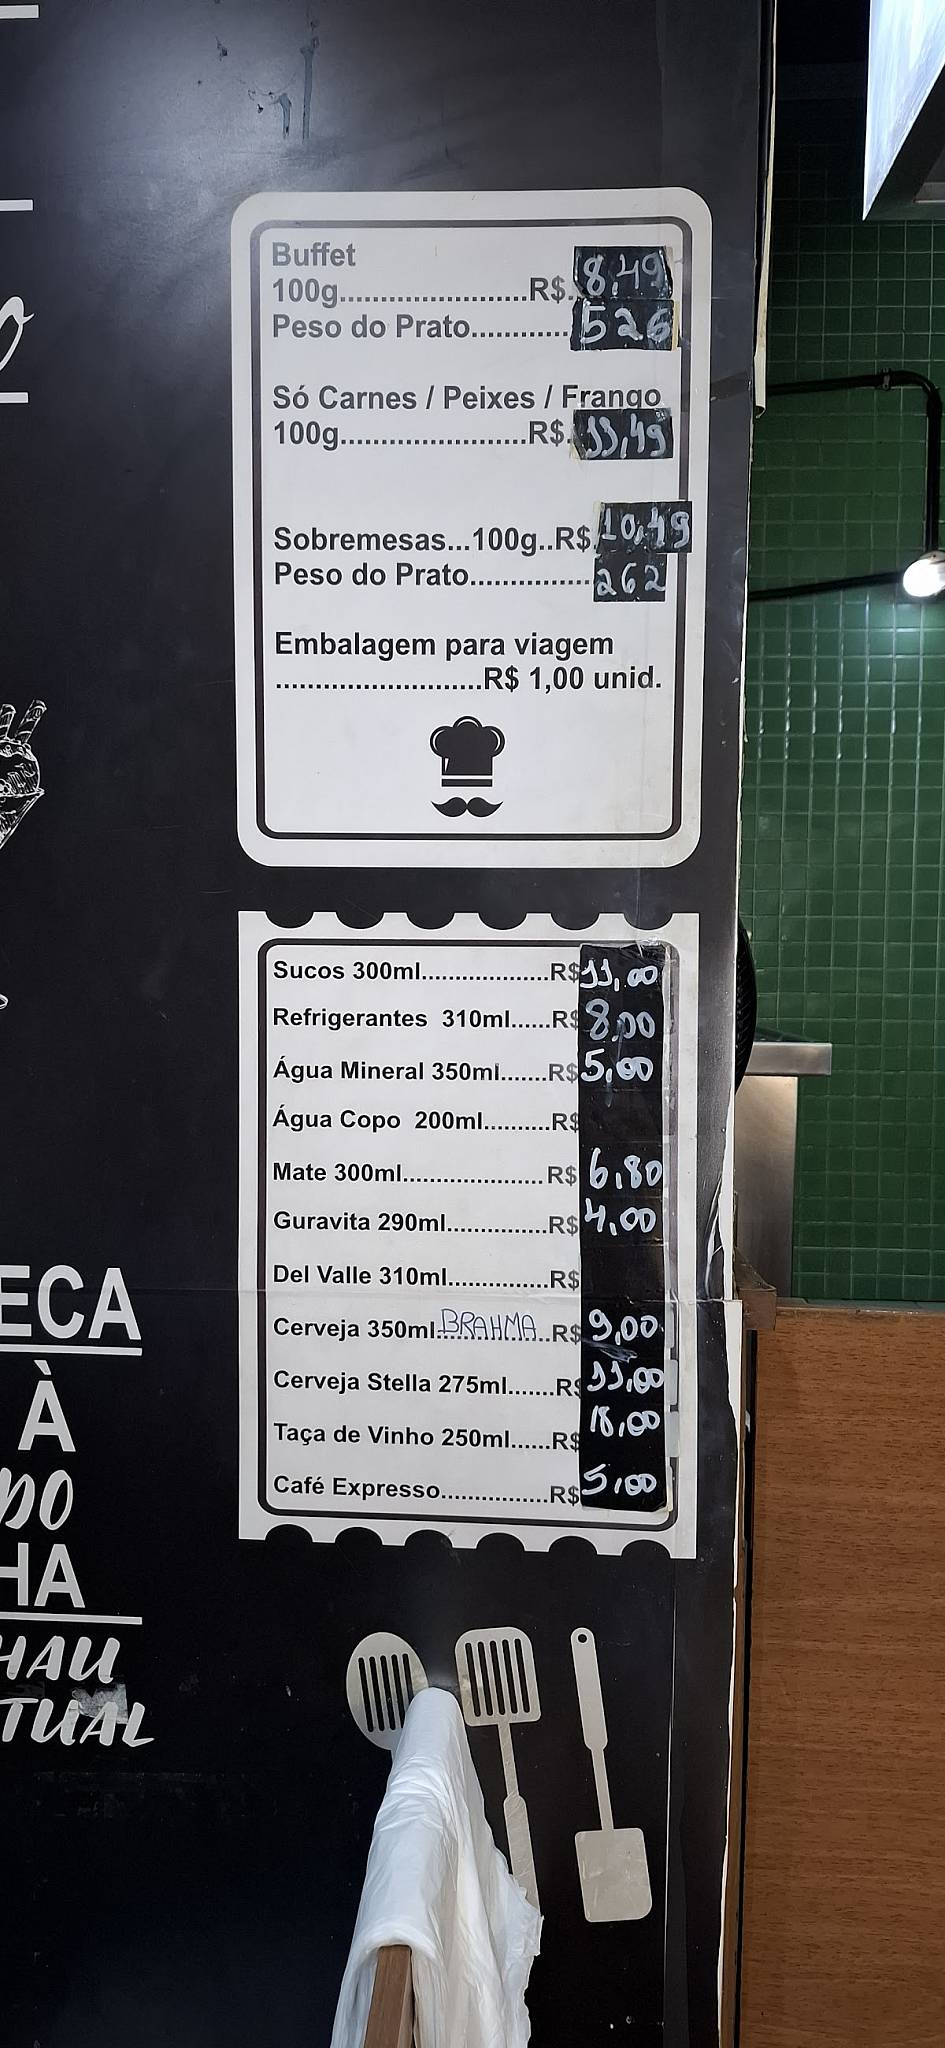 Buffet
100g.......................R$. 8,49
Peso do Prato............. 526
Só Carnes / Peixes / Frango
100g.......................R$. 11,49
Sobremesas...100g..R$. 10,49
Peso do Prato................ 262
Embalagem para viagem
..........................R$ 1,00 unid.
Sucos 300ml...................R$ 11,00
Refrigerantes 310ml......R$ 8,00
Água Mineral 350ml.......R$ 5,00
Água Copo 200ml..........R$
Mate 300ml.....................R$ 6,80
Guravita 290ml...............R$ 4,00
Del Valle 310ml...............R$
Cerveja 350ml BRAHMA ..R$ 9,00
Cerveja Stella 275ml.......R$ 11,00
Taça de Vinho 250ml......R$ 18,00
Café Expresso................R$ 5,00
ECA
À
DO
HA
HAU
TUAL